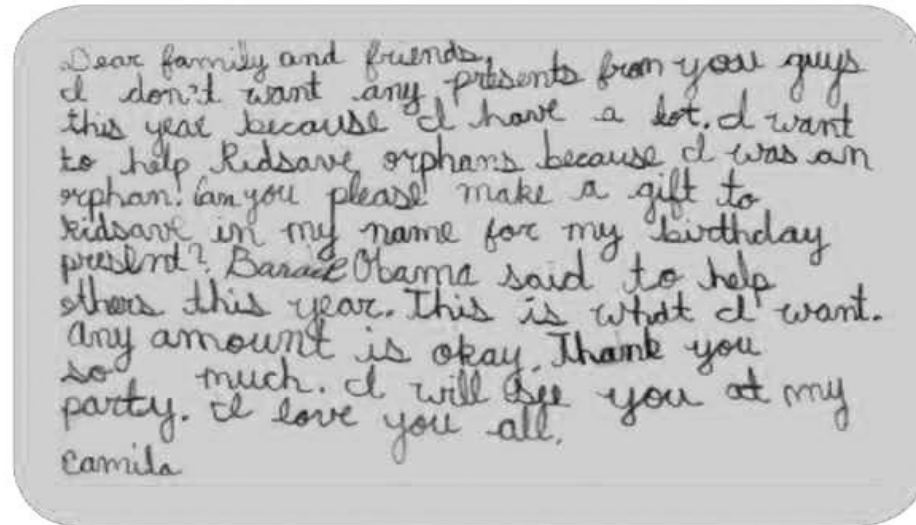 Dear family and friends,
I don't want any presents from you guys
this year because I have a lot. I want
to help Kidsave orphans because I was an
orphan. Can you please make a gift to
Kidsave in my name for my birthday
present? Barack Obama said to help
others this year. This is what I want.
Any amount is okay. Thank you
so much. I will see you at my
party. I love you all.
Camila